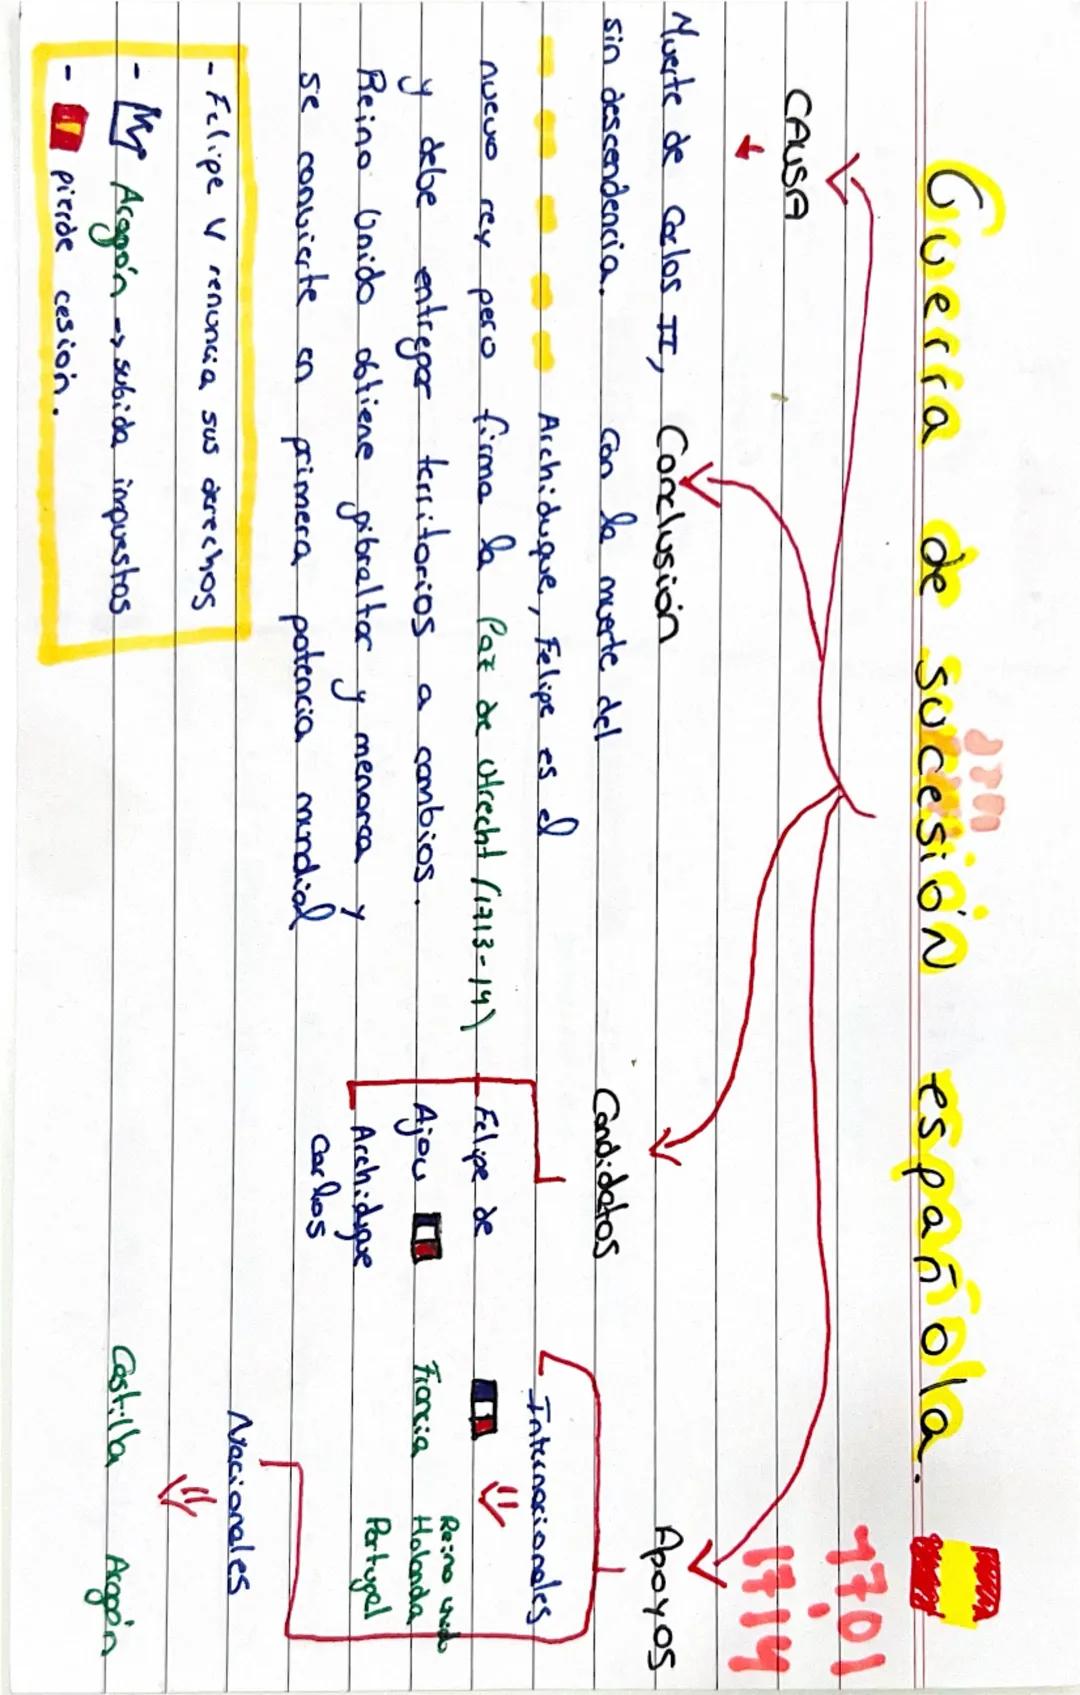 Guerra de sucesión española.
1701
1714
CAUSA
Muerte de Carlos II,
sin descendencia.
Conclusión
con la muerte del
Archiduque, Felipe es el
nuevo rey pero firma la Paz de Utrecht (1713-14)
y debe entregar territorios a cambios.
Reino Unido obtiene gibraltar y menorca y
se convierte en primera potencia mundial
- Felipe V renuncia sus derechos
- Aragón → subida impuestos
- pierde cesión.
Candidatos
Felipe de
Ajou
Archiduque
Carlos
Apoyos
Internacionales
Francia
Reino unido
Holanda
Portugal
Nacionales
Castilla Aragón